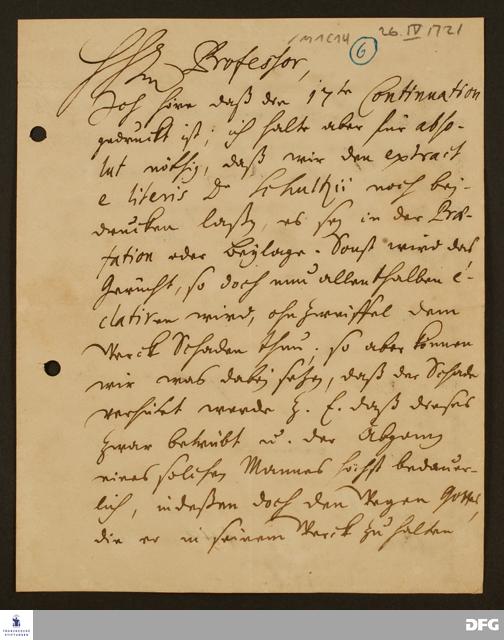 M1C14
26. IV 1721
6
HE. Professor,
Ich höre daß die 17te Continuation
gedruckt ist; ich halte aber für abso-
lut nöthig, daß wir den extract
e literis D. Schultzii noch bey-
drucken laßen, es sey in der Præ-
fation oder Beylage. Sonst wird das
Gerücht, so doch nun allenthalben é-
clatiren wird, ohn Zweiffel dem
Werck Schaden thun; so aber können
wir was dabey setzen, daß der Schade
verhütet werde z. E. daß dieses
zwar betrübt u. der Abgang
eines solchen Mannes höchst bedauer-
lich, indeßen doch den Wegen Gottes,
die er in seinem Werck zu halten
FRANCKESCHE
STIFTUNGEN
DFG